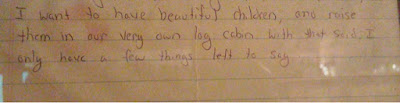 I want to have beautiful children, and raise
them in our very own log cabin. With that said, I
only have a few things left to say